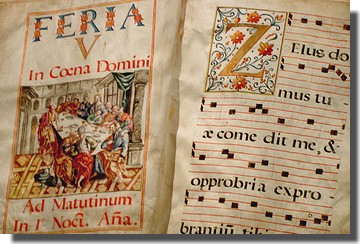 FERIA
V
In Cœna Domini
Ad Matutinum
In I° Noct. Aña.
Zelus do
mus tu
æ come dit me, &
opprobria expro
brantiũ tibi